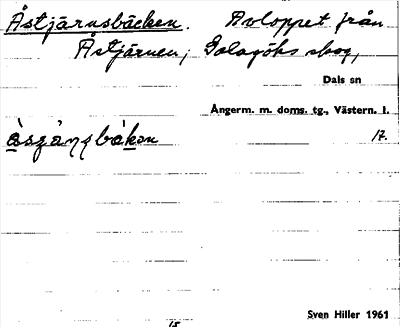 Åstjärnsbäcken. Avloppet från
Åstjärnen, Galasjöhs skog,
Dals sn
Ångerm. m. doms. tg., Västern. l.
17.
Sven Hiller 1961
15